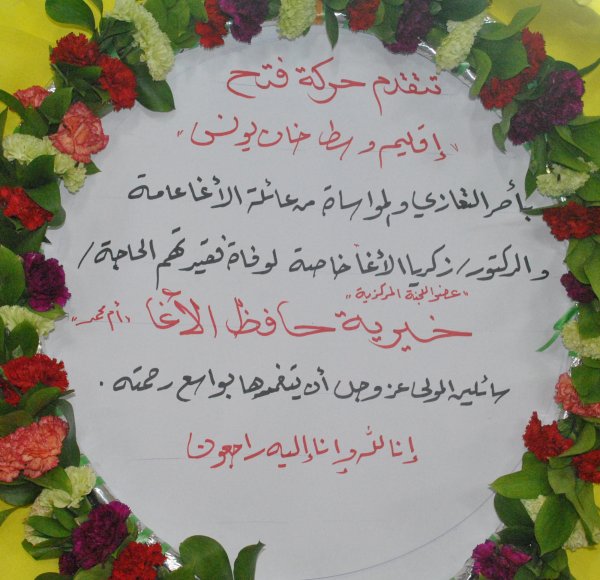 تتقدم حركة فتح
"إقليم وسط خان يونس"
بأحر التعازي والمواساة من عائلة الأغا عامة
والدكتور/ زكريا الأغا خاصة لوفاة فقيدتهم الحاجة/
"عضو اللجنة المركزية"
خيرية حافظ الآغا "أم محمد"
سائلين المولى عز وجل أن يتغمدها بواسع رحمته .
إنا لله وإنا إليه راجعون